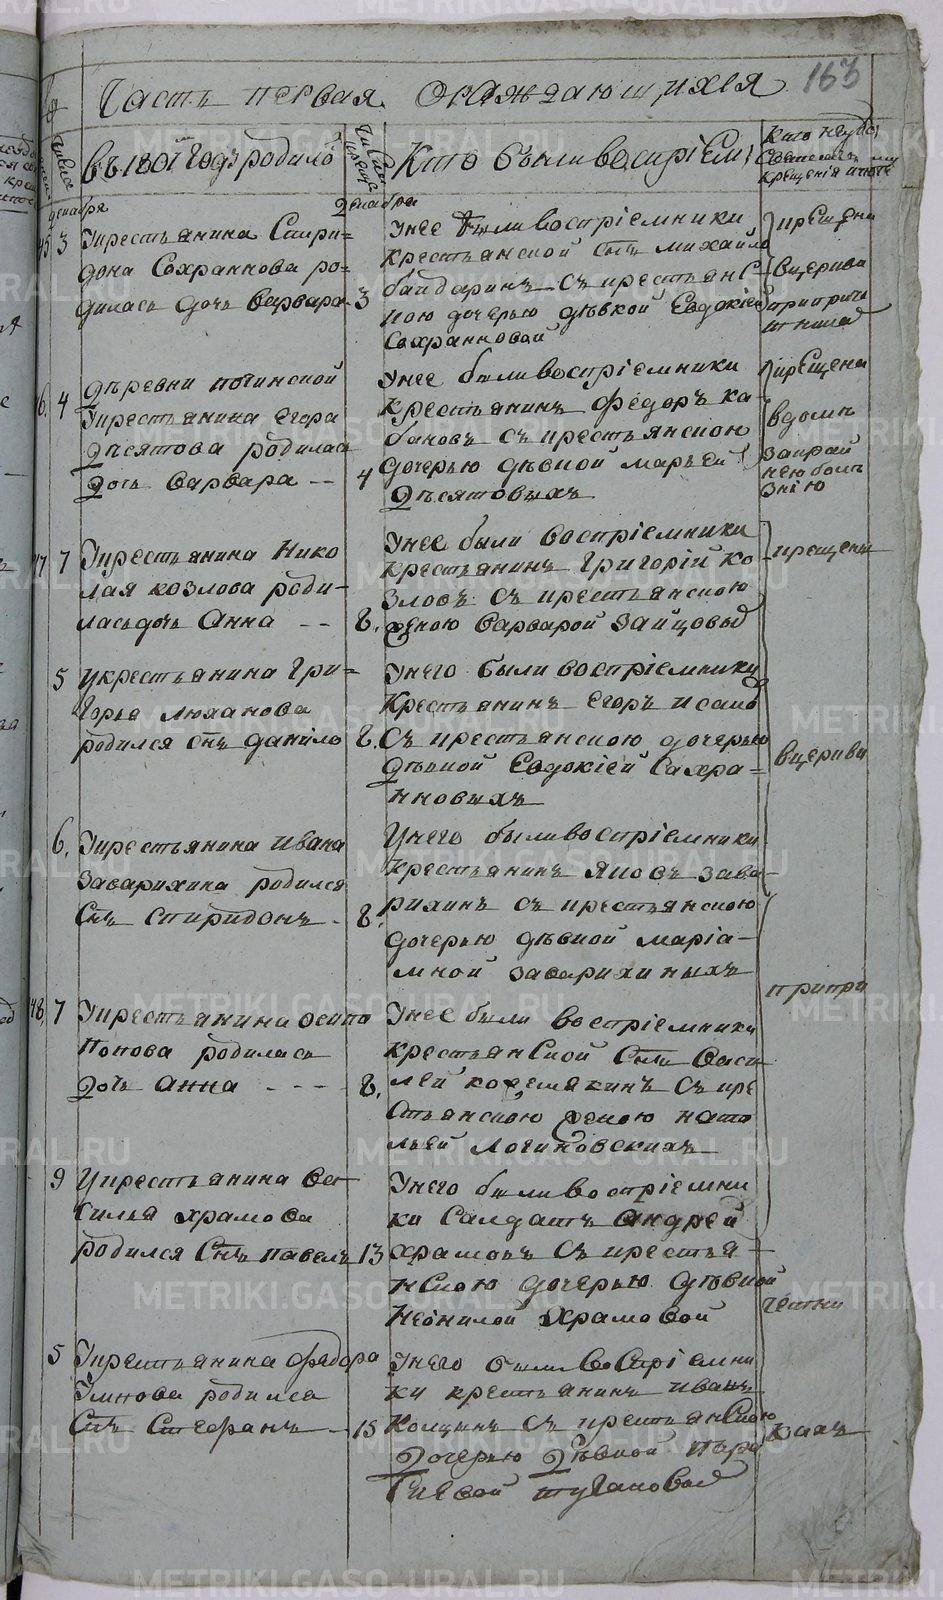 Часть первая ораждающихся
163
въ 1801 годъ родило
Кто были воспрiем;
декабря
декабря
45 3 Укрестьянина Спири=
дона Сохраннова ро=
дилась дочь Варвара 3
Унее были воспрiемники
крестьянской сынъ михайло
байдаринъ съ крестьянс-
кою дочерью дѣвкой Евдокiей
Сохранновой
крещены
вцеркви
припричте
4 Деревни починской
Укрестьянина Егора
Десятова родилась
Дочь Варвара -- 4
Унее были воспрiемники
крестьянинъ федоръ ка
бановъ съ крестьянскою
дочерью дѣвкой марьей
Десятовыхъ
крещена
вдомѣ
закрай
нею болѣ
знiю
47 7 Укрестьянина Нико
лая козлова роди-
лась дочь Анна -- 8.
Унее были воспрiемники
крестьянинъ Григорiй ко
зловъ съ крестьянскою
женою Варварой Зайцовы
крещены
5 Укрестьянина Гри=
горья люханова
родился снъ данило 8.
Унего были воспрiемники
Крестьянинъ Егоръ Исако
Съ крестьянскою дочерью
дѣвкой Евдокiей Сахра=
нновыхъ
вцеркви
6. Укрестьянина ивана
Заварихина родился
Снъ Спиридонъ - 8.
Унего были воспрiемники
крестьянинъ Яковъ зава-
рихинъ съ крестьянскою
дочерью дѣвкой марiа-
мной заварихиныхъ
припри
48 7 Укрестьянина осипа
Попова родилась
дочь Анна - - - - 8.
Унее были воспрiемники
крестьянской Снъ Васи
лей кожемякинъ Съ кре
стьянскою женою ната
льей Логиновскихъ
9 Укрестьянина Ва
силья храмова
родился Снъ павелъ 13
Унего были воспрiемни
ки Салдатъ Андрей
храмовъ съ крестья-
нскою дочерью дѣвкой
Неонилой Храмовой
четни
5 Укрестьянина федора
Умнова родился
Снъ Стефанъ - 15
Унего были Воспрiемни
ки крестьянинъ иванъ
Колцынъ съ крестьянскою
дочерью дѣвкой пара
скевой тугановой
кахъ